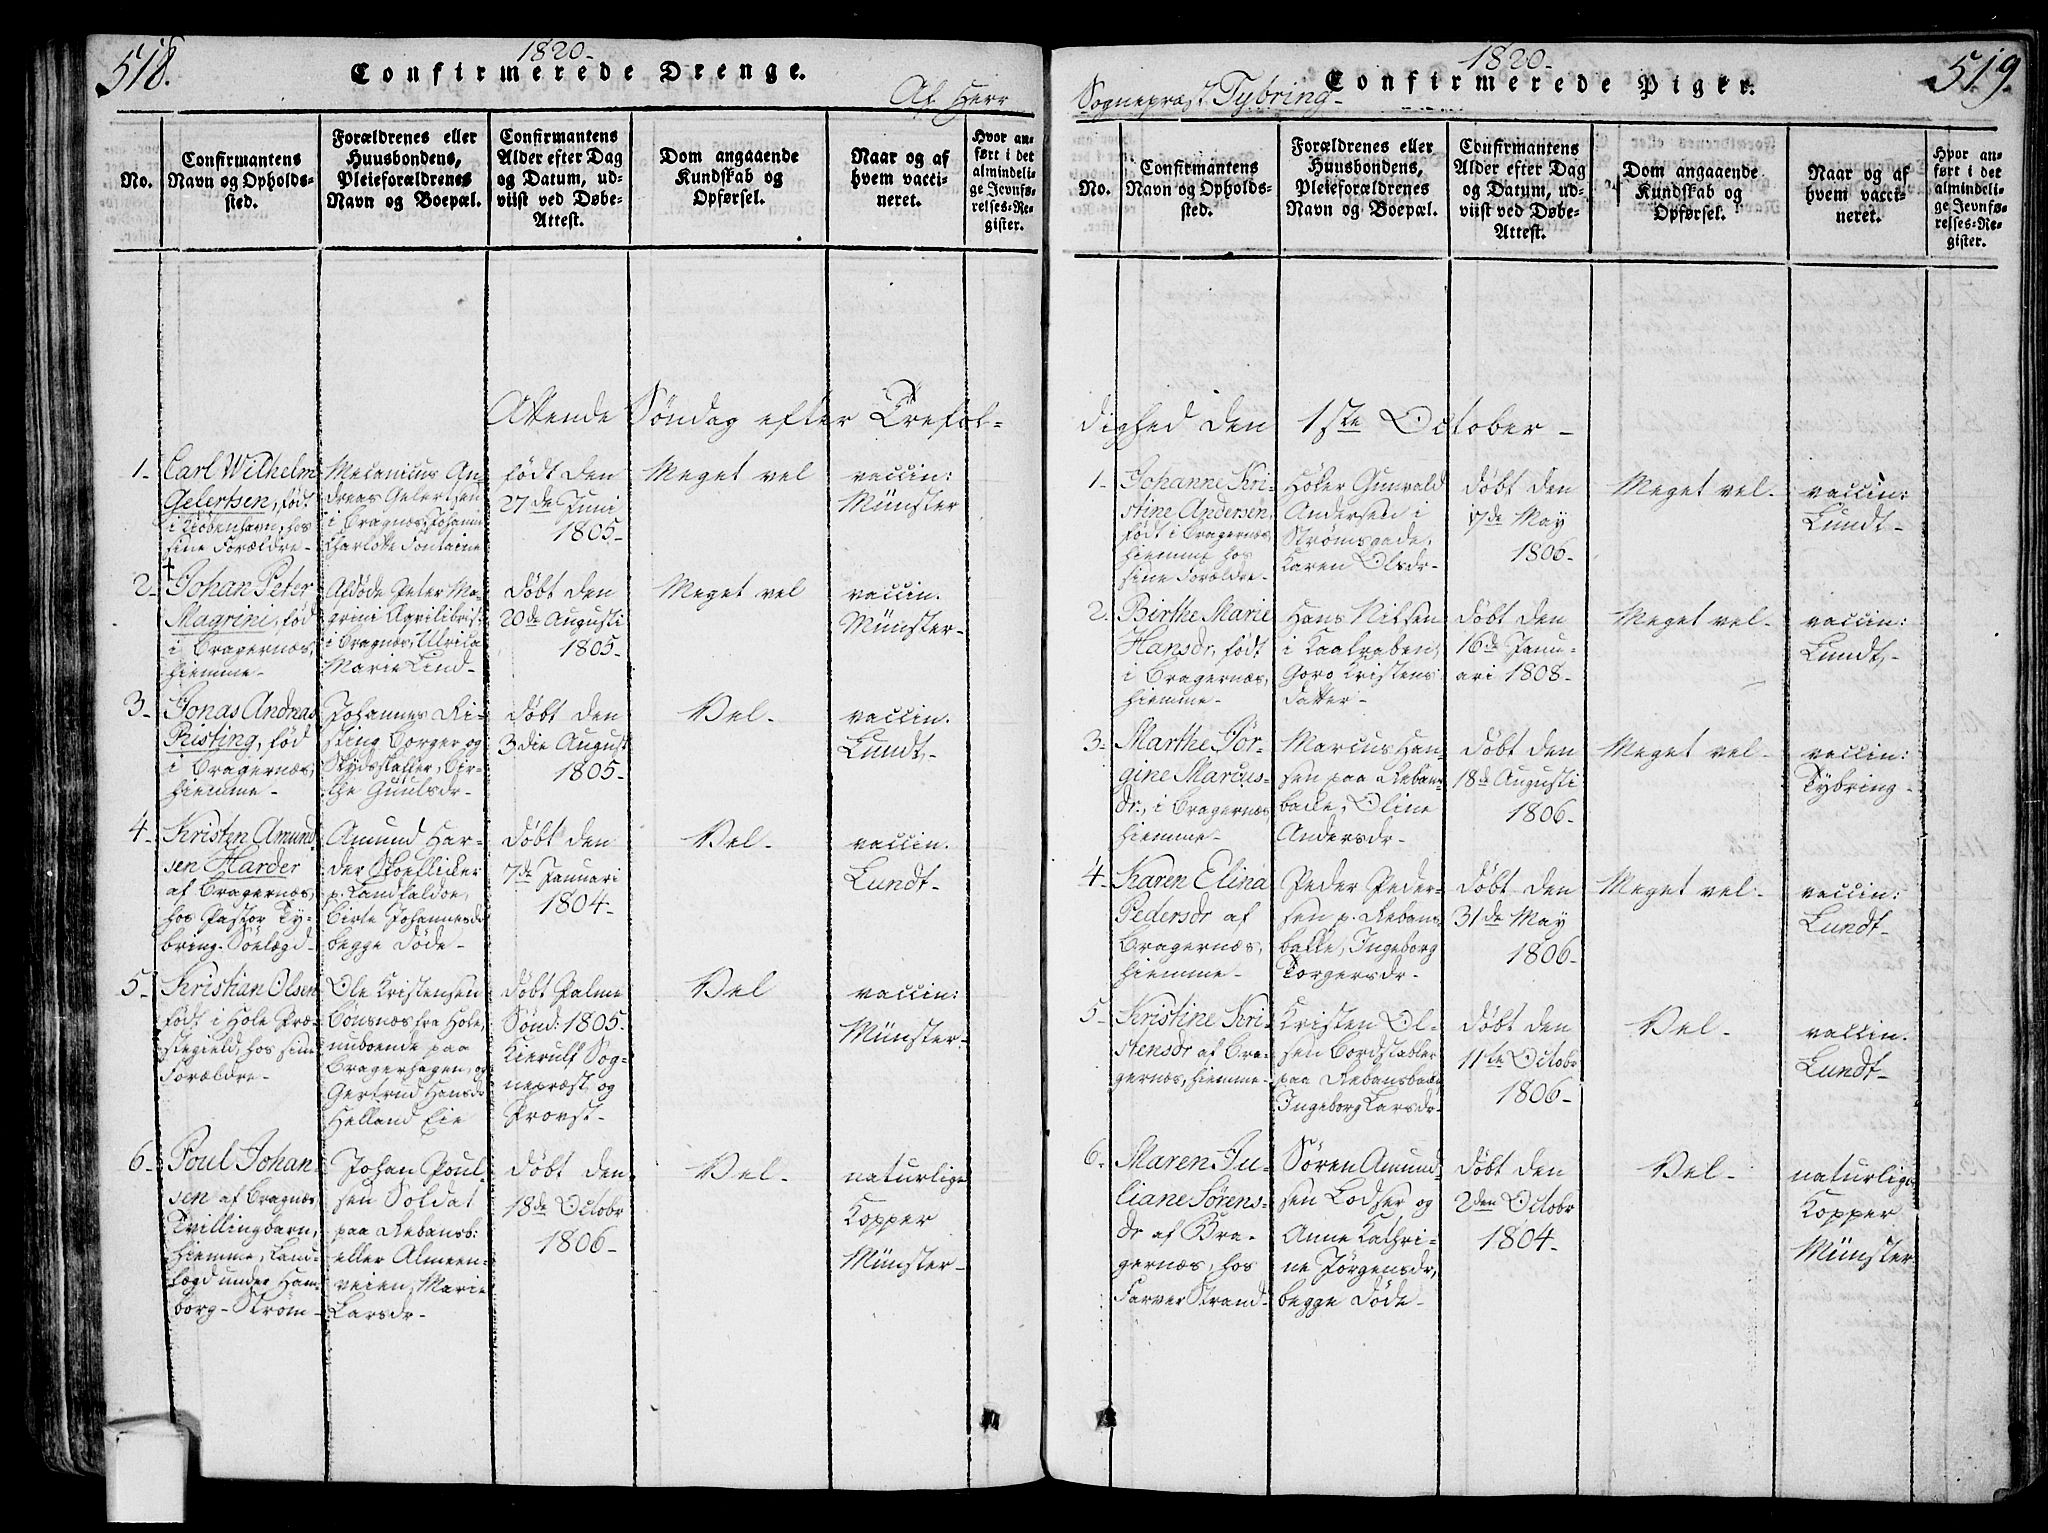 518.
1820-
Confirmerede Drenge.
Af Herr
No.
Confirmantens
Navn og Opholds-
sted.
Forældrenes eller
Huusbondens,
Pleieforældrenes
Navn og Boepæl.
Confirmantens
Alder efter Dag
og Datum, ud-
viist ved Døbe-
Attest.
Dom angaaende
Kundskab og
Opførsel.
Naar og af
hvem vacci-
neret.
Hvor an-
ført i det
almindeli-
ge Jevnfø-
relses-Re-
gister.
Attende Søndag efter Trefol-
1-
Carl Wilhelm
Gelertsen, født
i Kiöbenhavn, hos
sine Forældre-
Mecanicus An-
dreas Gelertsen
i Bragnæs, Johanne
Charlotte Fontaine
født den
27de Juni
1805-
Meget vel
vaccin:
Münster
2-
Johan Peter
Magrini, fød
i Bragernæs,
hiemme-
Afdøde Peter Ma-
grini
i Bragnæs, Ulrica
Marie Lind-
døbt den
20de Augusti
1805-
Meget vel
vaccin.
Münster-
3-
Jonas Andreas
Risting, fød
i Bragernæs,
hiemme-
Johannes Ri-
sting Borger og
Skydsskaffer, Bir-
the Guulsdr-
døbt den
3die August
1805-
Vel-
vaccin.
Lundt-
4-
Kristen Amund
sen Harder
af Bragernæs,
hos Pastor Ty-
bring. Söelægd-
Amund Har-
der Skoeflicker
p. Landfaldøe,
Birte Johannesdr
begge døde-
døbt den
7de Januari
1804-
Vel-
vaccin.
Lundt-
5-
Kristian Olsen
født i Hole Præ-
stegield, hos sine
Forældre-
Ole Kristensen
Bönsnæs fra Hole,
nuboende paa
Bragerhagen, og
Gertrud Hansdr
Helland Eie
døbt Palme
Sønd: 1805-
Kierulf Sog-
nepræst og
Provst-
Vel
vaccin:
Münster-
6-
Poul Johan-
sen af Bragnæs
Tvillingbarn,
hiemme, Land-
lægd under Ham-
borg-Strøm-
Johan Poul-
sen Soldat
paa Rebansb:
eller Almeen-
veien, Marie
Larsdr-
døbt den
18de Octobr
1806-
Vel-
naturlige
Kopper
Münster-
519.
1820-
Sognepræst Tybring-
Confirmerede Piger.
No.
Confirmantens
Navn og Opholds-
sted.
Forældrenes eller
Huusbondens,
Pleieforældrenes
Navn og Boepæl.
Confirmantens
Alder efter Dag
og Datum, ud-
viist ved Døbe-
Attest.
Dom angaaende
Kundskab og
Opførsel.
Naar og af
hvem vacci-
neret.
Hvor an-
ført i det
almindeli-
ge Jevnfø-
relses-Re-
gister.
dighed den 1ste October-
1-
Johanne Kri-
stine Andersen,
født i Bragernæs,
hiemme hos
sine Forældre-
Höker Gunvald
Andersen i
Strømsgade,
Karen Olsdr-
døbt den
17de May
1806-
Meget vel-
vaccin:
Lundt-
2-
Birthe Marie
Hansdr, født
i Bragernæs,
hiemme-
Hans Nilsen
i Kaalraben,
Goro Kristens
datter-
døbt den
16de Janu-
ari 1808-
Meget vel-
vaccin:
Lundt-
3-
Marthe Jør-
gine Marcus-
dr, i Bragernæs
hiemme-
Marcus Han-
sen paa Rebans-
bakke, Oline
Andersdr-
døbt den
18de Augusti
1806-
Meget vel-
vaccin:
Tybring-
4-
Karen Elina
Pedersdr af
Bragernæs,
hiemme-
Peder Peder-
sen p. Rebans-
bakke, Ingeborg
Torgersdr-
døbt den
31de May
1806-
Meget vel-
vaccin:
Lundt-
5-
Kristine Kri-
stensdr af Bra-
gernæs, hiemme-
Kristen Ol-
sen Bordstabler
paa Rebansbakke
Ingeborg Larsdr-
døbt den
11te Octobr
1806-
Vel-
vaccin.
Lundt-
6-
Maren Ju-
liane Sørens-
dr af Bra-
gernæs, hos
Farver Strand-
Søren Amund-
sen Lodser og
Anne Kathri-
ne Jørgensdr,
begge døde-
døbt den
2den Octobr
1804-
Vel-
naturlige
Kopper
Münster